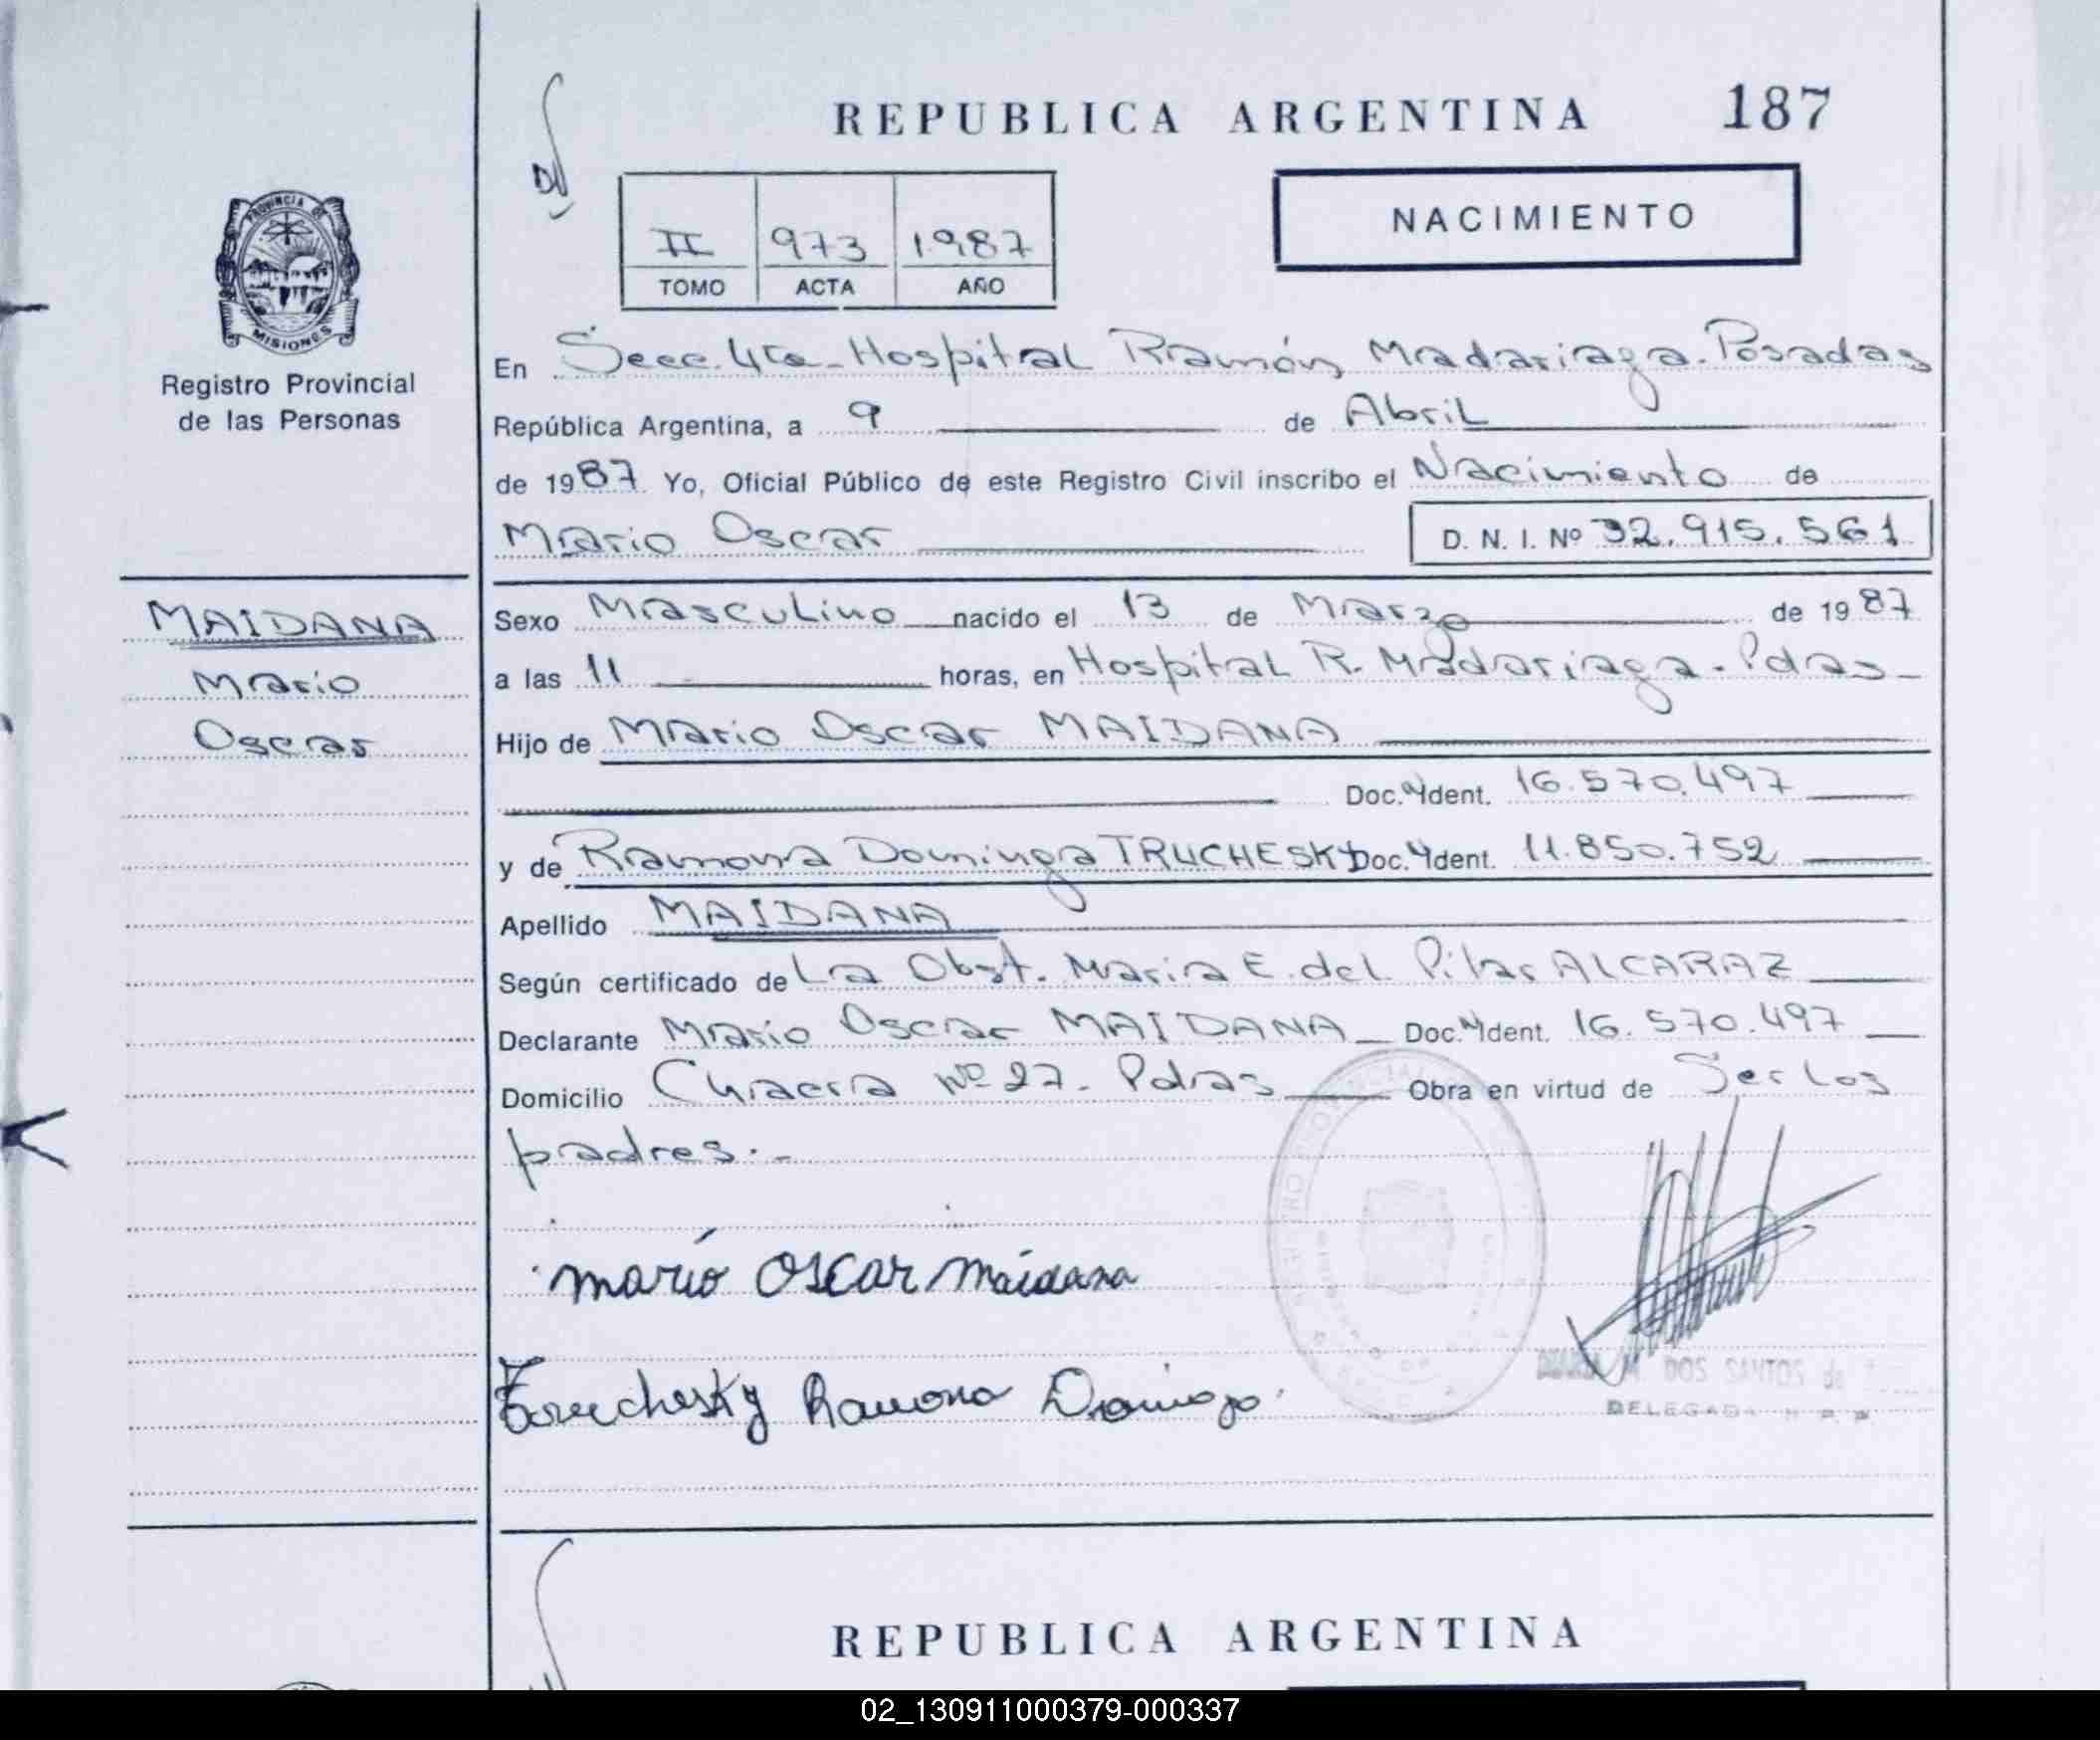 REPUBLICA ARGENTINA 187
NACIMIENTO
II 973 1987
TOMO ACTA AÑO
PROVINCIA DE
MISIONES
Registro Provincial
de las Personas
En Secc. 4ta - Hospital Ramón Madariaga - Posadas
República Argentina, a 9 de Abril
de 1987 Yo, Oficial Público de este Registro Civil inscribo el Nacimiento de
Mario Oscar D. N. I. Nº 32.915.561
MAIDANA
Mario
Oscar
Sexo Masculino nacido el 13 de Marzo de 1987
a las 11 horas, en Hospital R. Madariaga - Pdas -
Hijo de Mario Oscar MAIDANA
Doc. Ident. 16.570.497
y de Ramona Dominga TRUCHESKY Doc. Ident. 11.850.752
Apellido MAIDANA
Según certificado de La Obst. Maria E. del Pilar ALCARAZ
Declarante Mario Oscar MAIDANA Doc. Ident. 16.570.497
Domicilio Chacra Nº 27 - Pdas Obra en virtud de Ser los
padres.-
mario oscar maidana
Truchesky Ramona Dominga
DOS SANTOS de
DELEGADA
REPUBLICA ARGENTINA
02_130911000379-000337